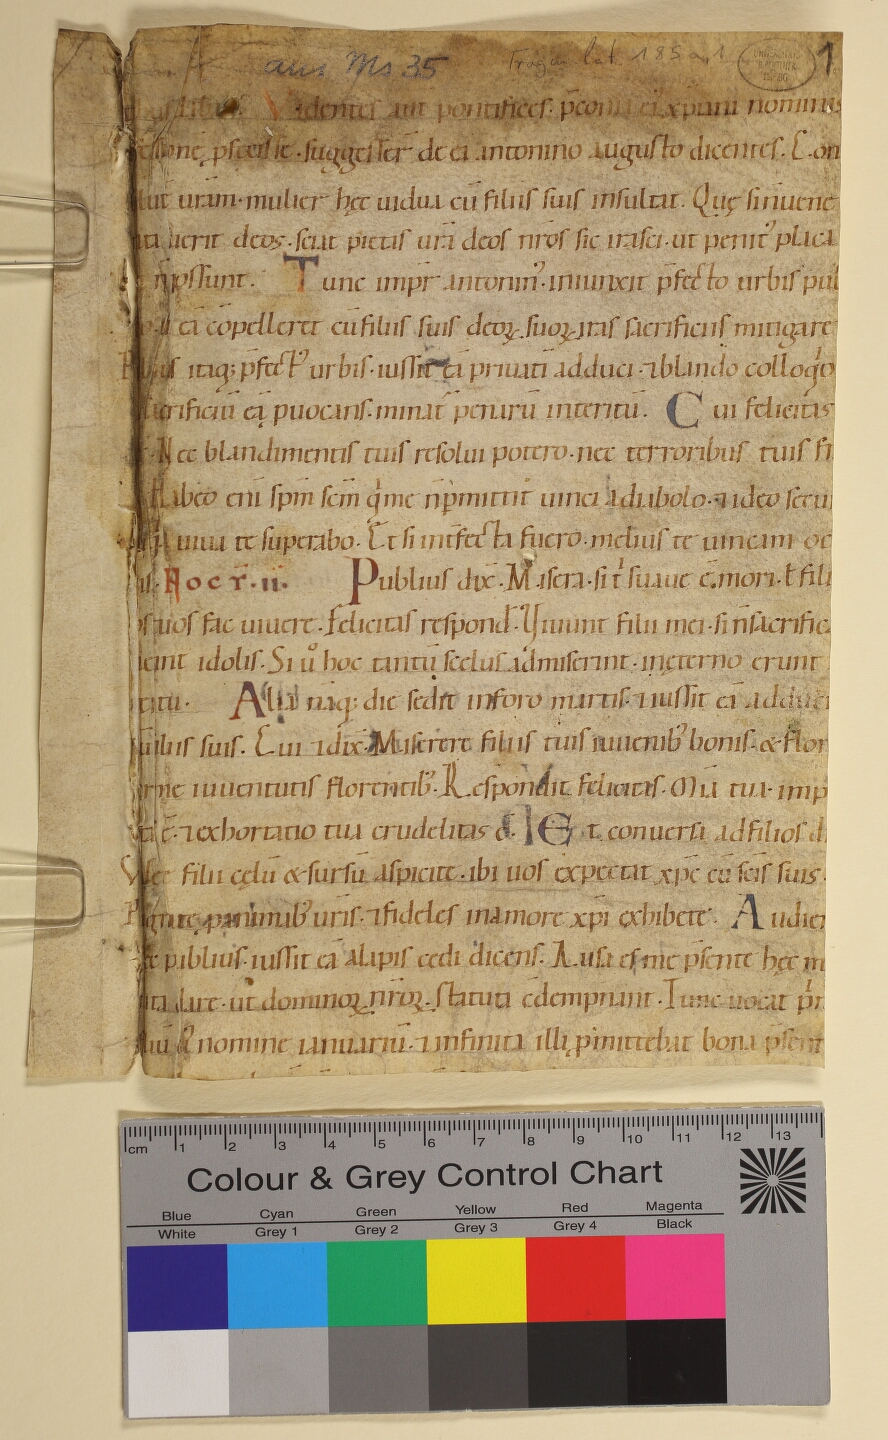 aus Ms 35 Fragm. lat 185 a,1 1
Videntes aut pontifices. p̄coni ei xp̄iani nominis
suggesser̄ de ea antonino augusto dicentes. Con
ur̄am. mulier hęc uidua cū filiis suis insultat. Quę si n̄ uene
uerit deos. sciat pietas ur̄a deos nr̄os sic irasci. ut penit᷒ placa
n̄ possunt. Tunc imp̄r antonin᷒. iniunxit p̄fecto urbis pub
ea cōpelleret cū filiis suis deoꝝ suoꝝ iras sacrificiis mitigare
itaq; p̄fect᷒ urbis. iussit eā priuatī adduci. ⁊ blando colloq̊o
sacrificiū eā ꝓuocans. minat᷒ penarū interitū. Cui felicitas
Nec blandimentis tuis resolui potero. nec terroribus tuis fr
habeo eni sp̄m sc̄m q̇ me n̄ p̄mittit uinci a diabolo. ⁊ ideo secu
uiua te superabo. Et si int̄fecta fuero. melius te uincam oc
Noct̄.ii. Publius dix̄. Misera. si t̄ suaue ē mori. ł fili
os tuos fac uiuere. Felicitas respond̄. Uiuunt filii mei. si n̄ sacrific
idolis. Si ů hoc tantū scelus admiserint. in ęterno erunt
Alia naq; die sedit in foro martis. ⁊ iussit eā adduci
filiis suis. Cui ⁊ dix̄. Miserere filiis tuis iuuenib᷒ bonis. & flor
iuuentutis florentib᷒. Respondit felicitas. Mīa tua. imp
ē. ⁊ exhortatio tua crudelitas ē. Et conuersa ad filios d
filii cęlū & sursū aspicite. ibi uos expectat xp̄c cū sc̄is suis.
Pugnate ꝓ animab᷒ ur̄is. ⁊ fideles in amore xp̄i exhibete. Audien
publius. iussit eā alapis cedi dicens. Ausa es me p̄sente hęc m
dare. ut dominoꝝ nr̄oꝝ statuta cōtempnant. Tunc uocat p̄r
nomine ianuariū. ⁊ infinita illi ꝓmittebat bona p̄sent
cm 1 2 3 4 5 6 7 8 9 10 11 12 13
Colour & Grey Control Chart
Blue Cyan Green Yellow Red Magenta
White Grey 1 Grey 2 Grey 3 Grey 4 Black